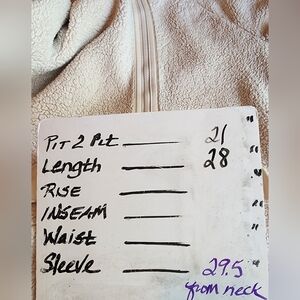 PIT 2 Pit 21 "
Length 28 "
RISE "
INSEAM "
Waist "
Sleeve 29.5 "
from neck